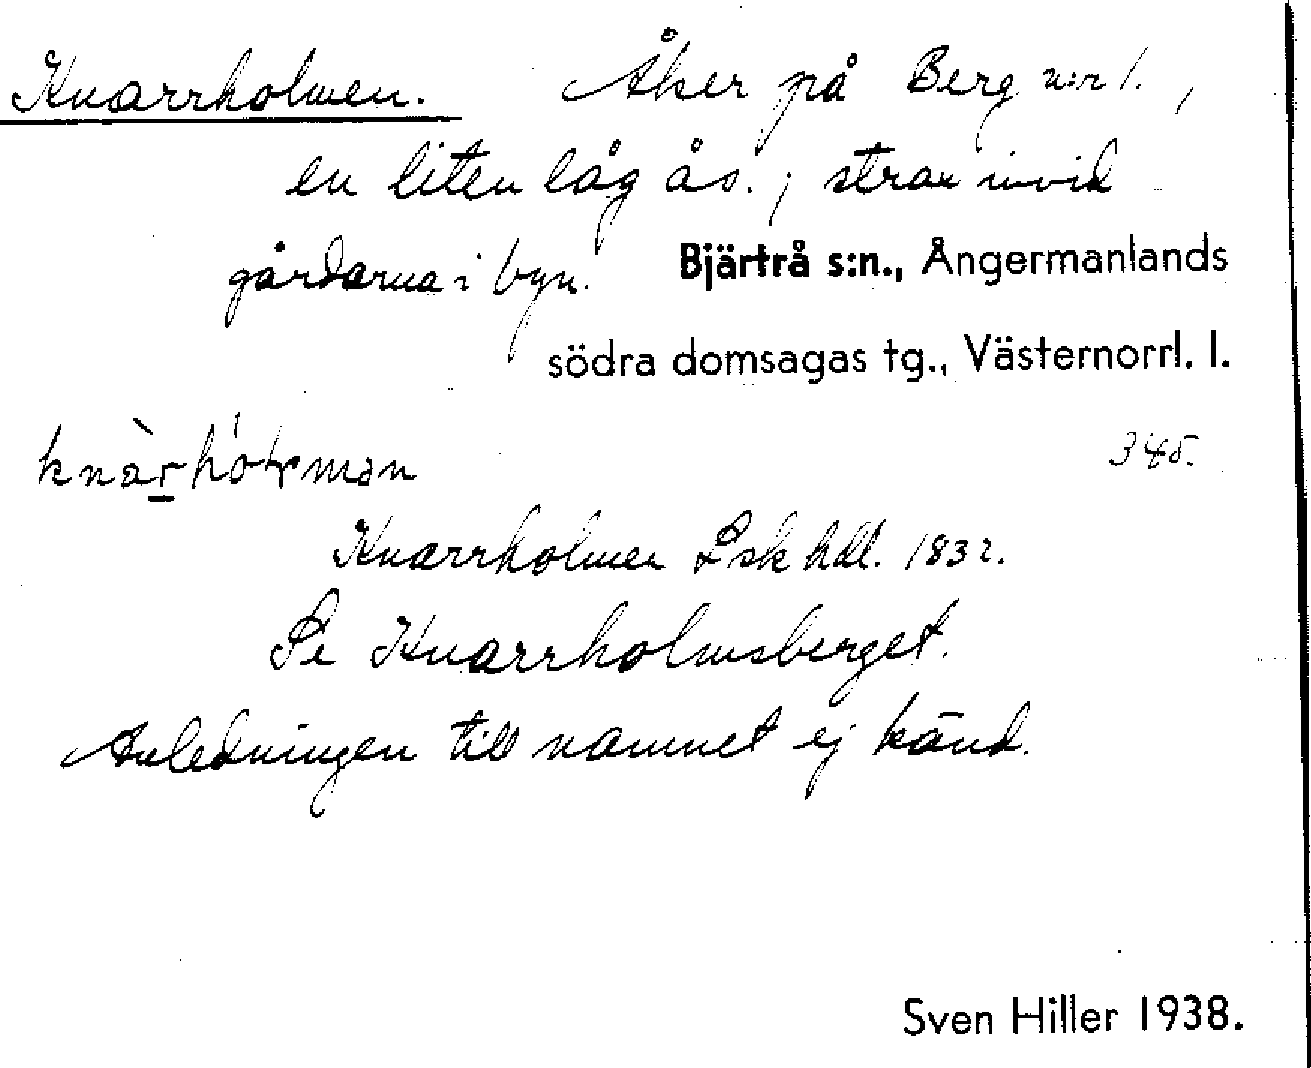 Knarrholmen. Åker på Berg n:r 1.,
en liten låg ås.; strax invid
gårdarna i byn. Bjärtrå s:n., Ångermanlands
södra domsagas tg., Västernorrl. l.
345.
Knarrholmen Lsk hdl. 1832.
Se Knarrholmsberget.
Anledningen till namnet ej känd.
Sven Hiller 1938.